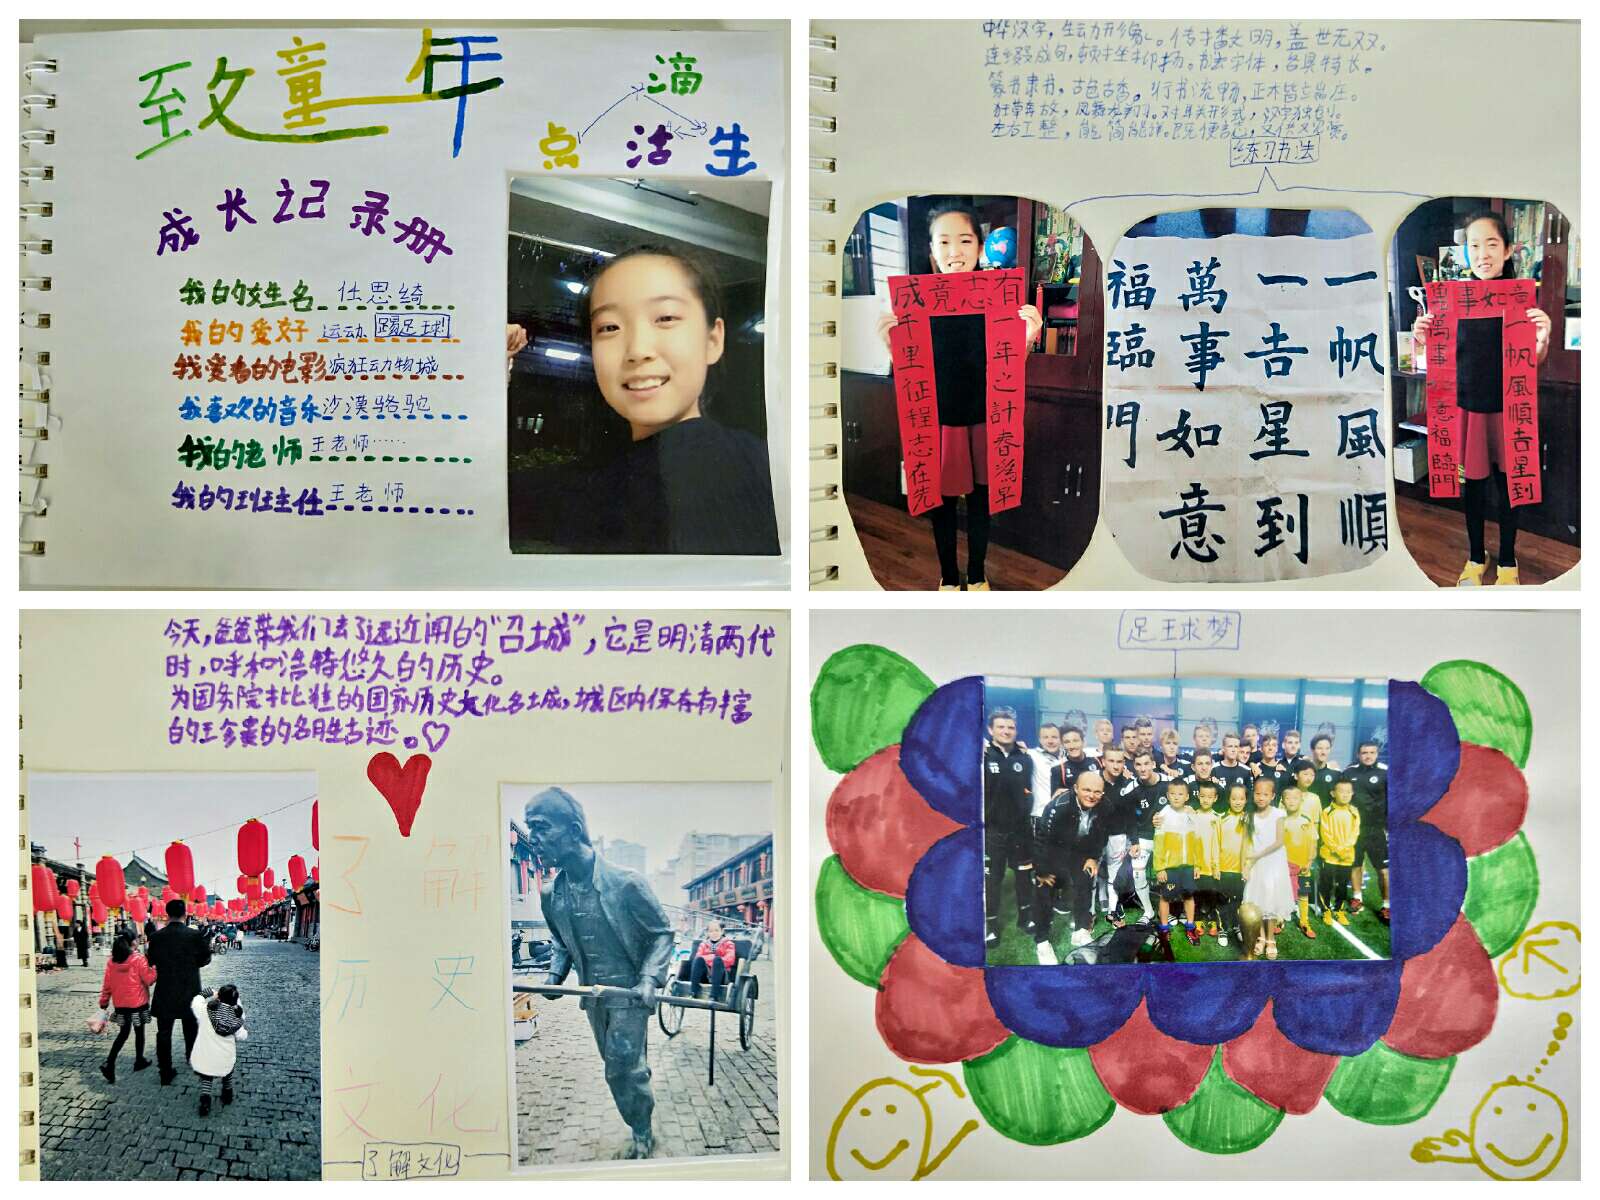 致童年
点滴
生活
成长记录册
我的姓名 任思绮
我的爱好 运动 踢足球
我爱看的电影 疯狂动物城
我喜欢的音乐 沙漠骆驼
我的老师 王老师……
我的班主任 王老师
中华汉字，生动形象。传播文明，盖世无双。
连缀成句，顿挫抑扬。书法字体，各具特长。
篆书隶书，古色古香。行书流畅，正木皆亡品庄。
狂草奔放，凤舞龙翔。对联形式，汉字独创。
左右工整，能简能详。
练习书法
有志竟成
一年之計春為早
千里征程志在先
一帆風順
一吉星到
萬事如意
福臨門
萬事如意
一帆風順吉星到
萬事如意福臨門
今天，爸爸带我们去了远近闻的“召城”，它是明清两代
时，呼和浩特悠久的历史。
为国务院批准的国家历史文化名城，城区内保存有丰富
的珍贵的名胜古迹。
了解
历史
文化
了解文化
足球梦